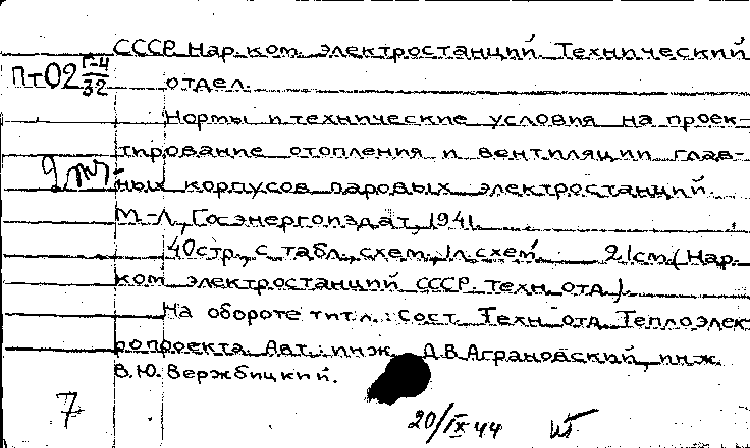 СССР. Нар. ком. электростанций. Технический
Пт02 Г-4/32 отдел.
Нормы и технические условия на проек-
тирование отопления и вентиляции глав-
ных корпусов паровых электростанций.
М.-Л., Госэнергоиздат, 1941.
40 стр., с табл., схем., 1 л. схем. 21 см. (Нар.
ком. электростанций СССР. Техн. отд.).
На обороте тит. л.: Сост. Техн. отд. Теплоэлек
ропроекта. Авт.: инж. Д.В. Аграновский, инж.
В.Ю. Вержбицкий.
7
20/IX 44